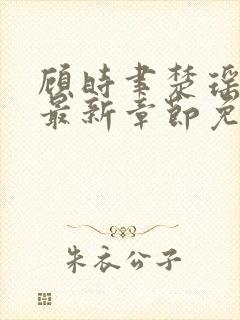 顾时聿楚瑶
最新章节免
朱衣公子